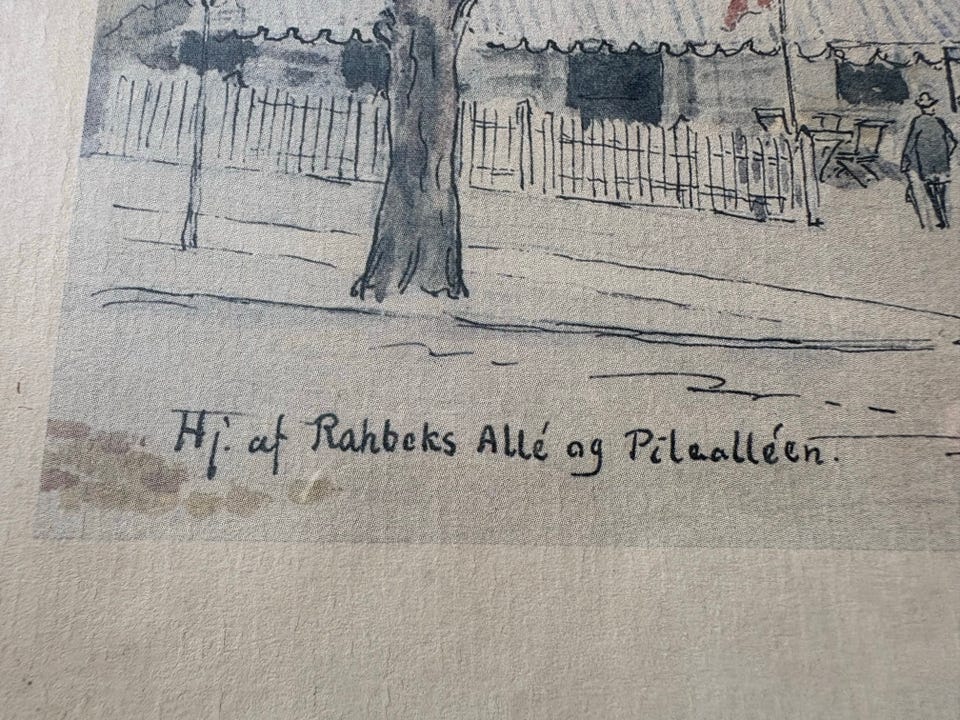 Hj. af Rahbeks Allé og Pilealléen.